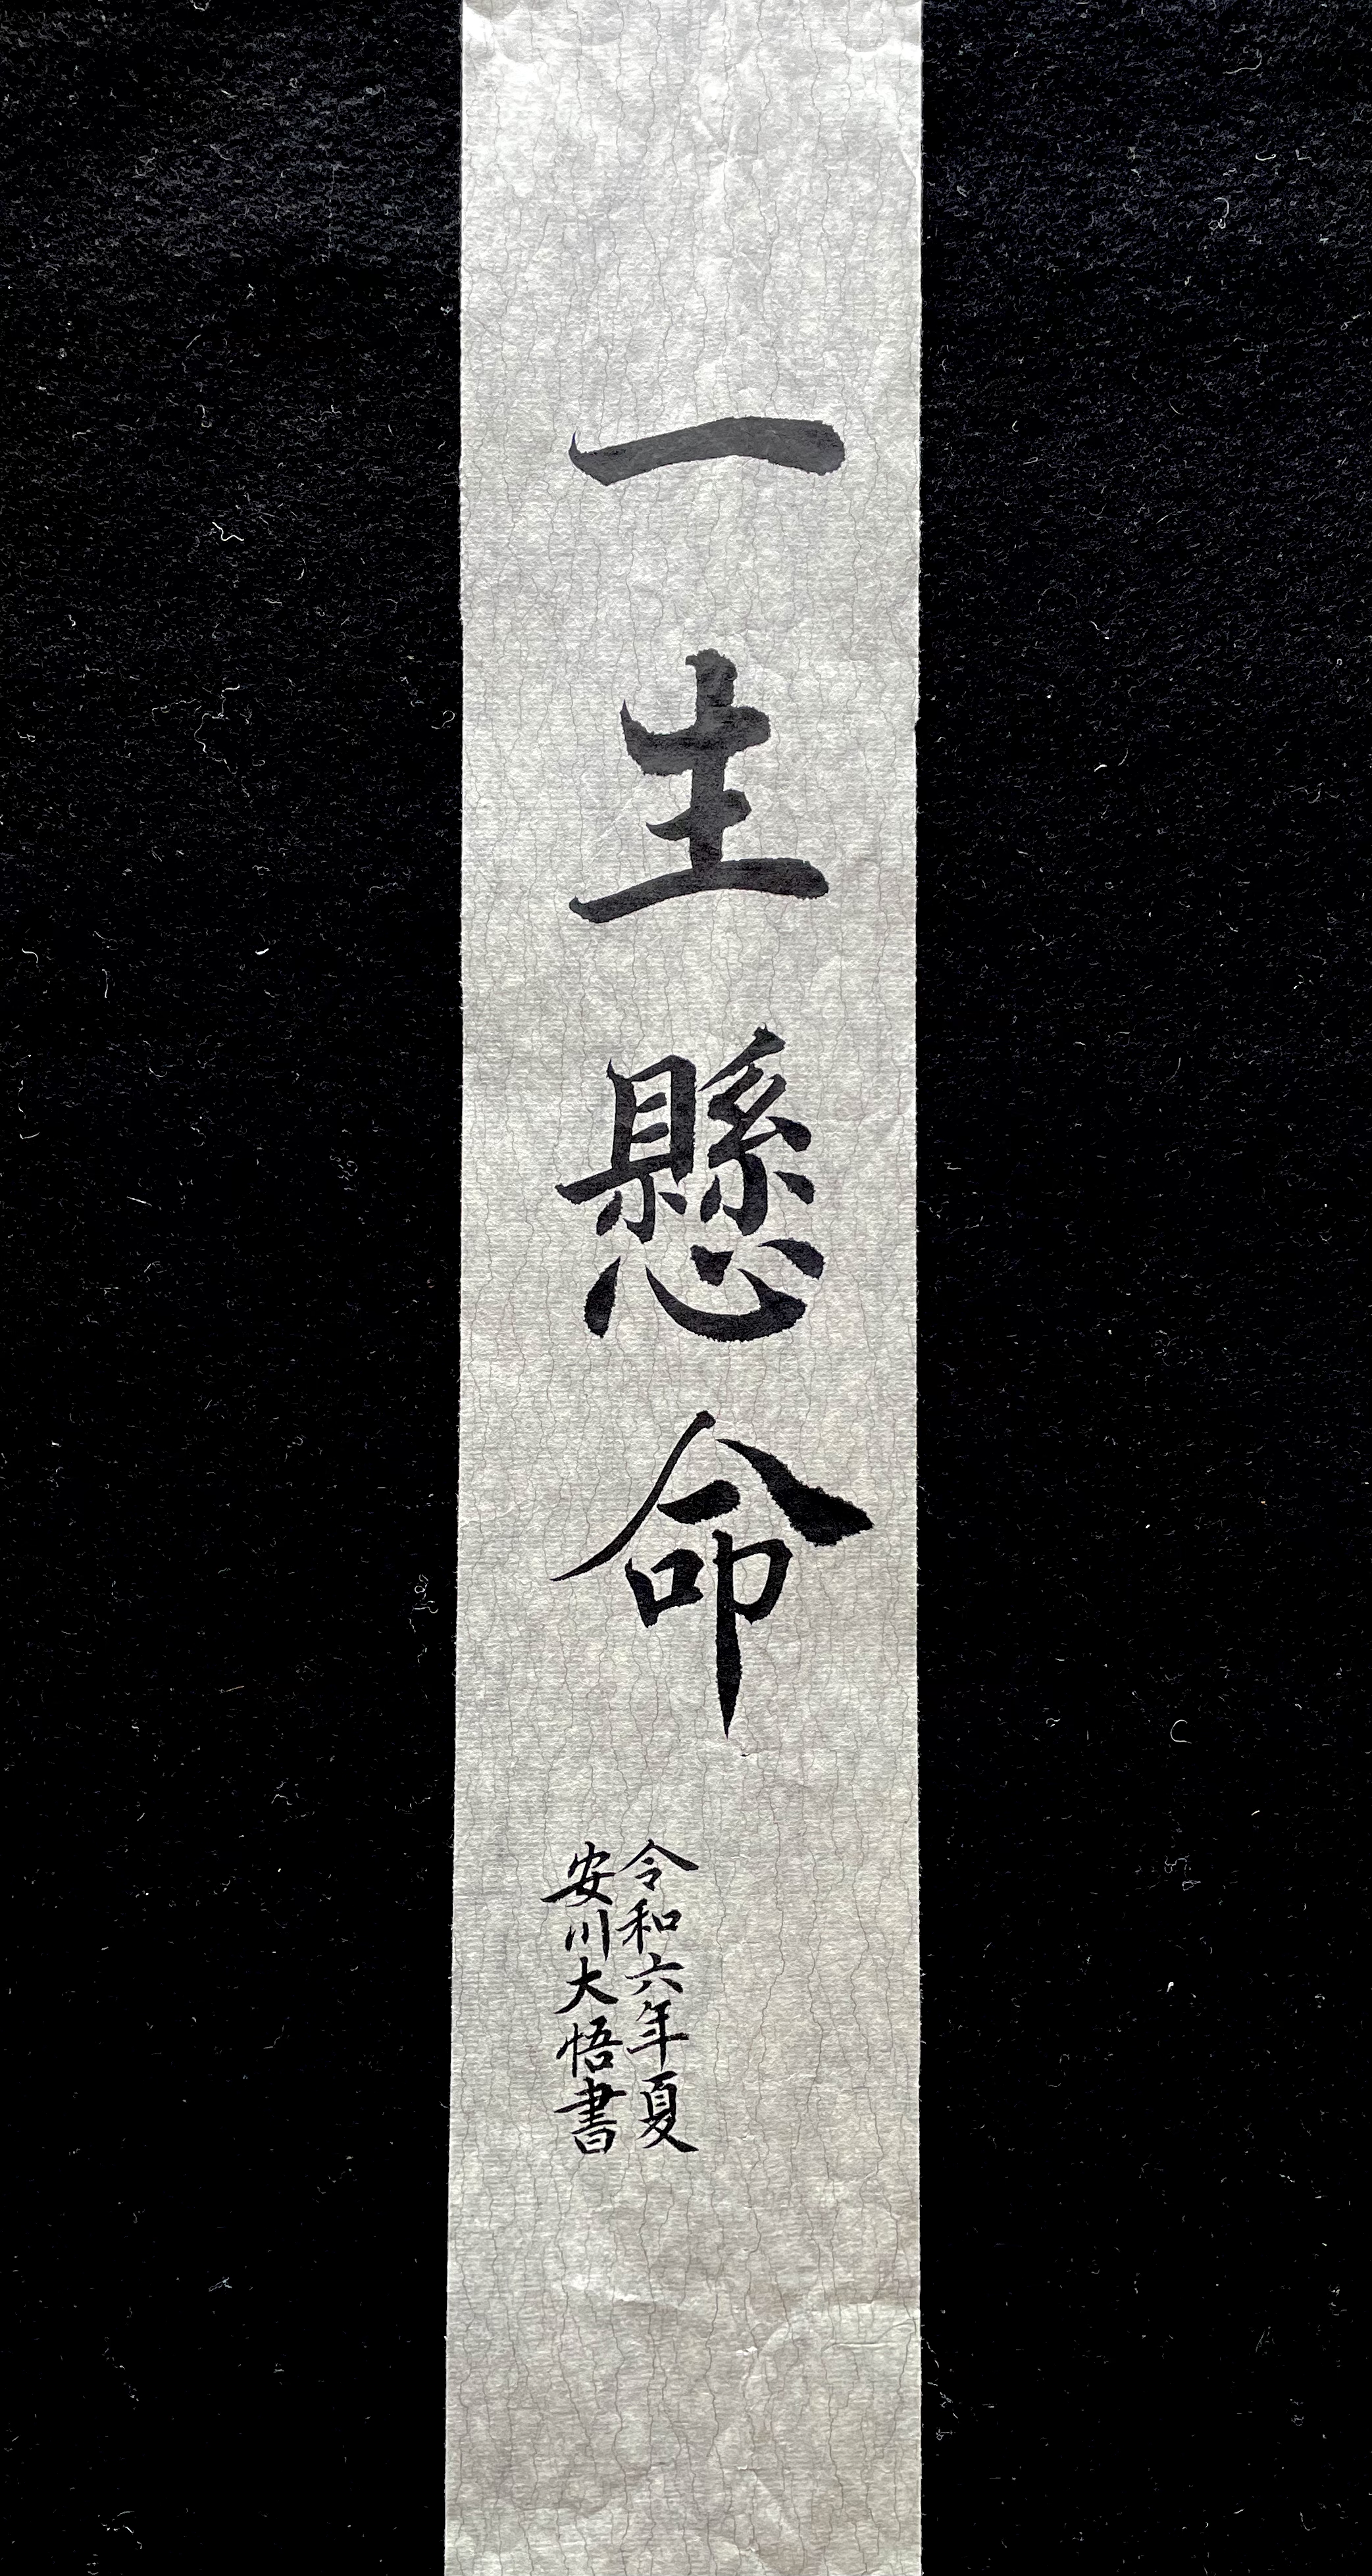 一生懸命
令和六年夏
安川大悟書